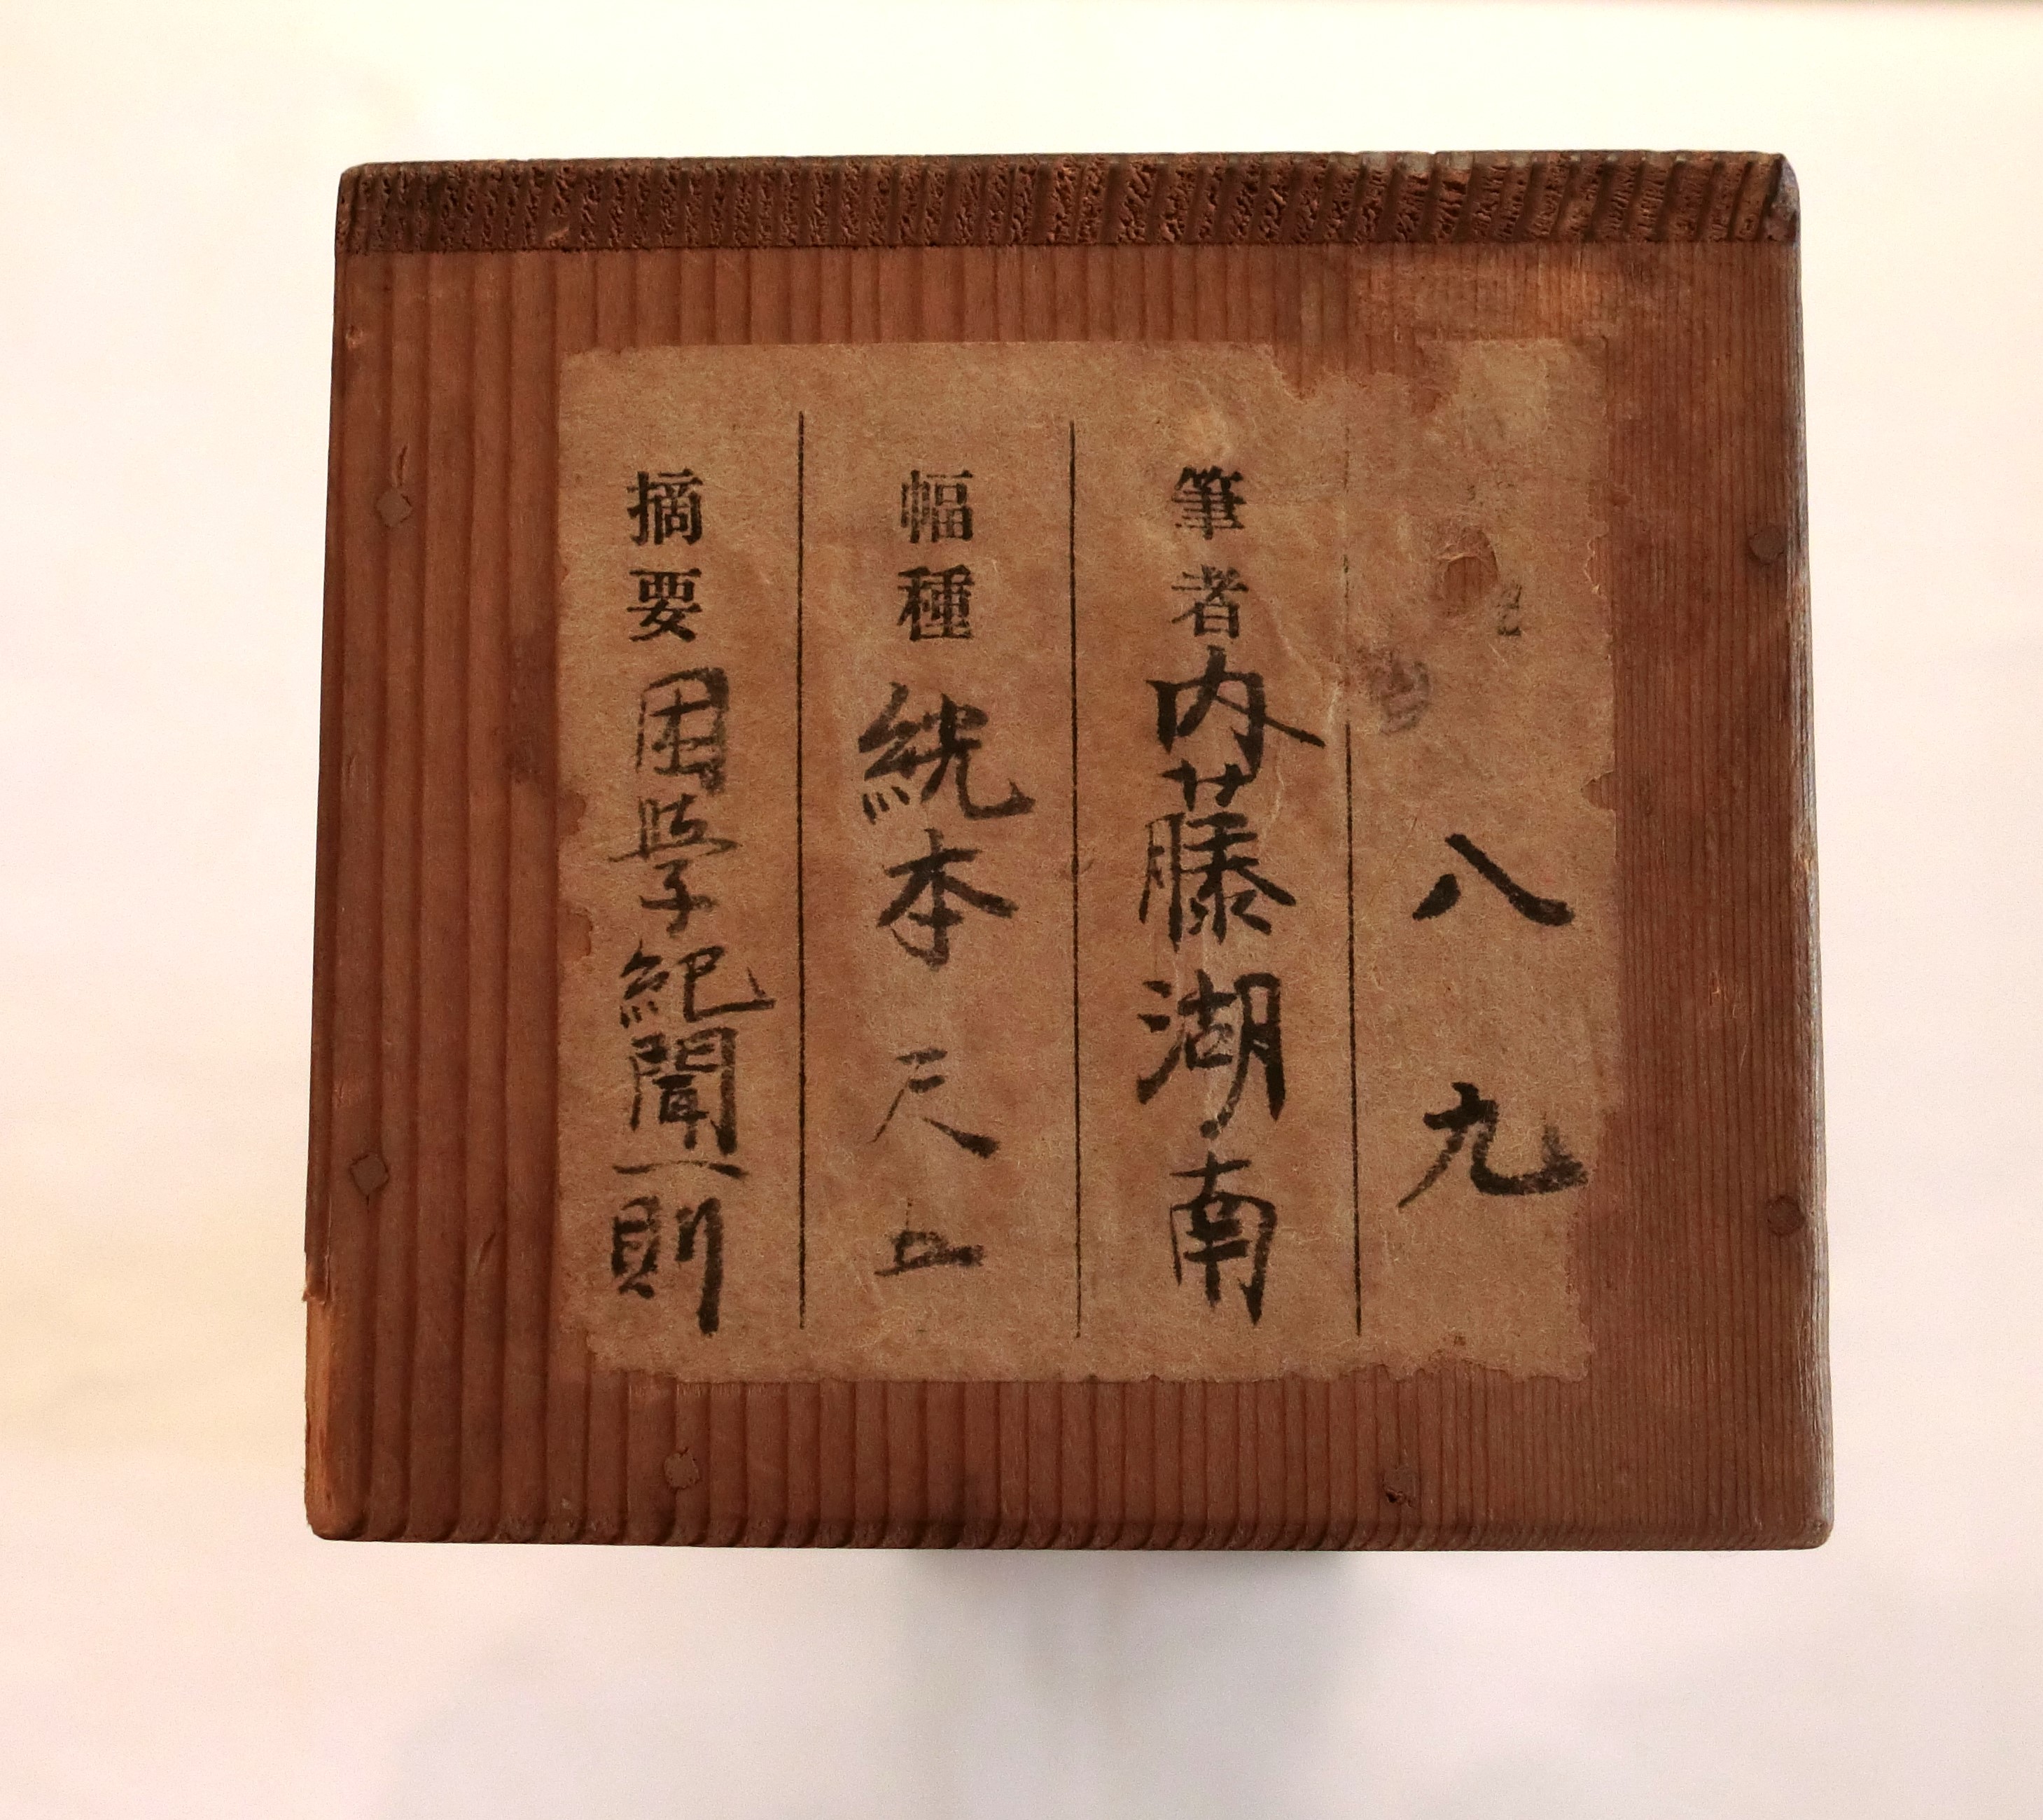 八九
筆者 内藤湖南
幅種 絖本 尺五
摘要 困學紀聞一則